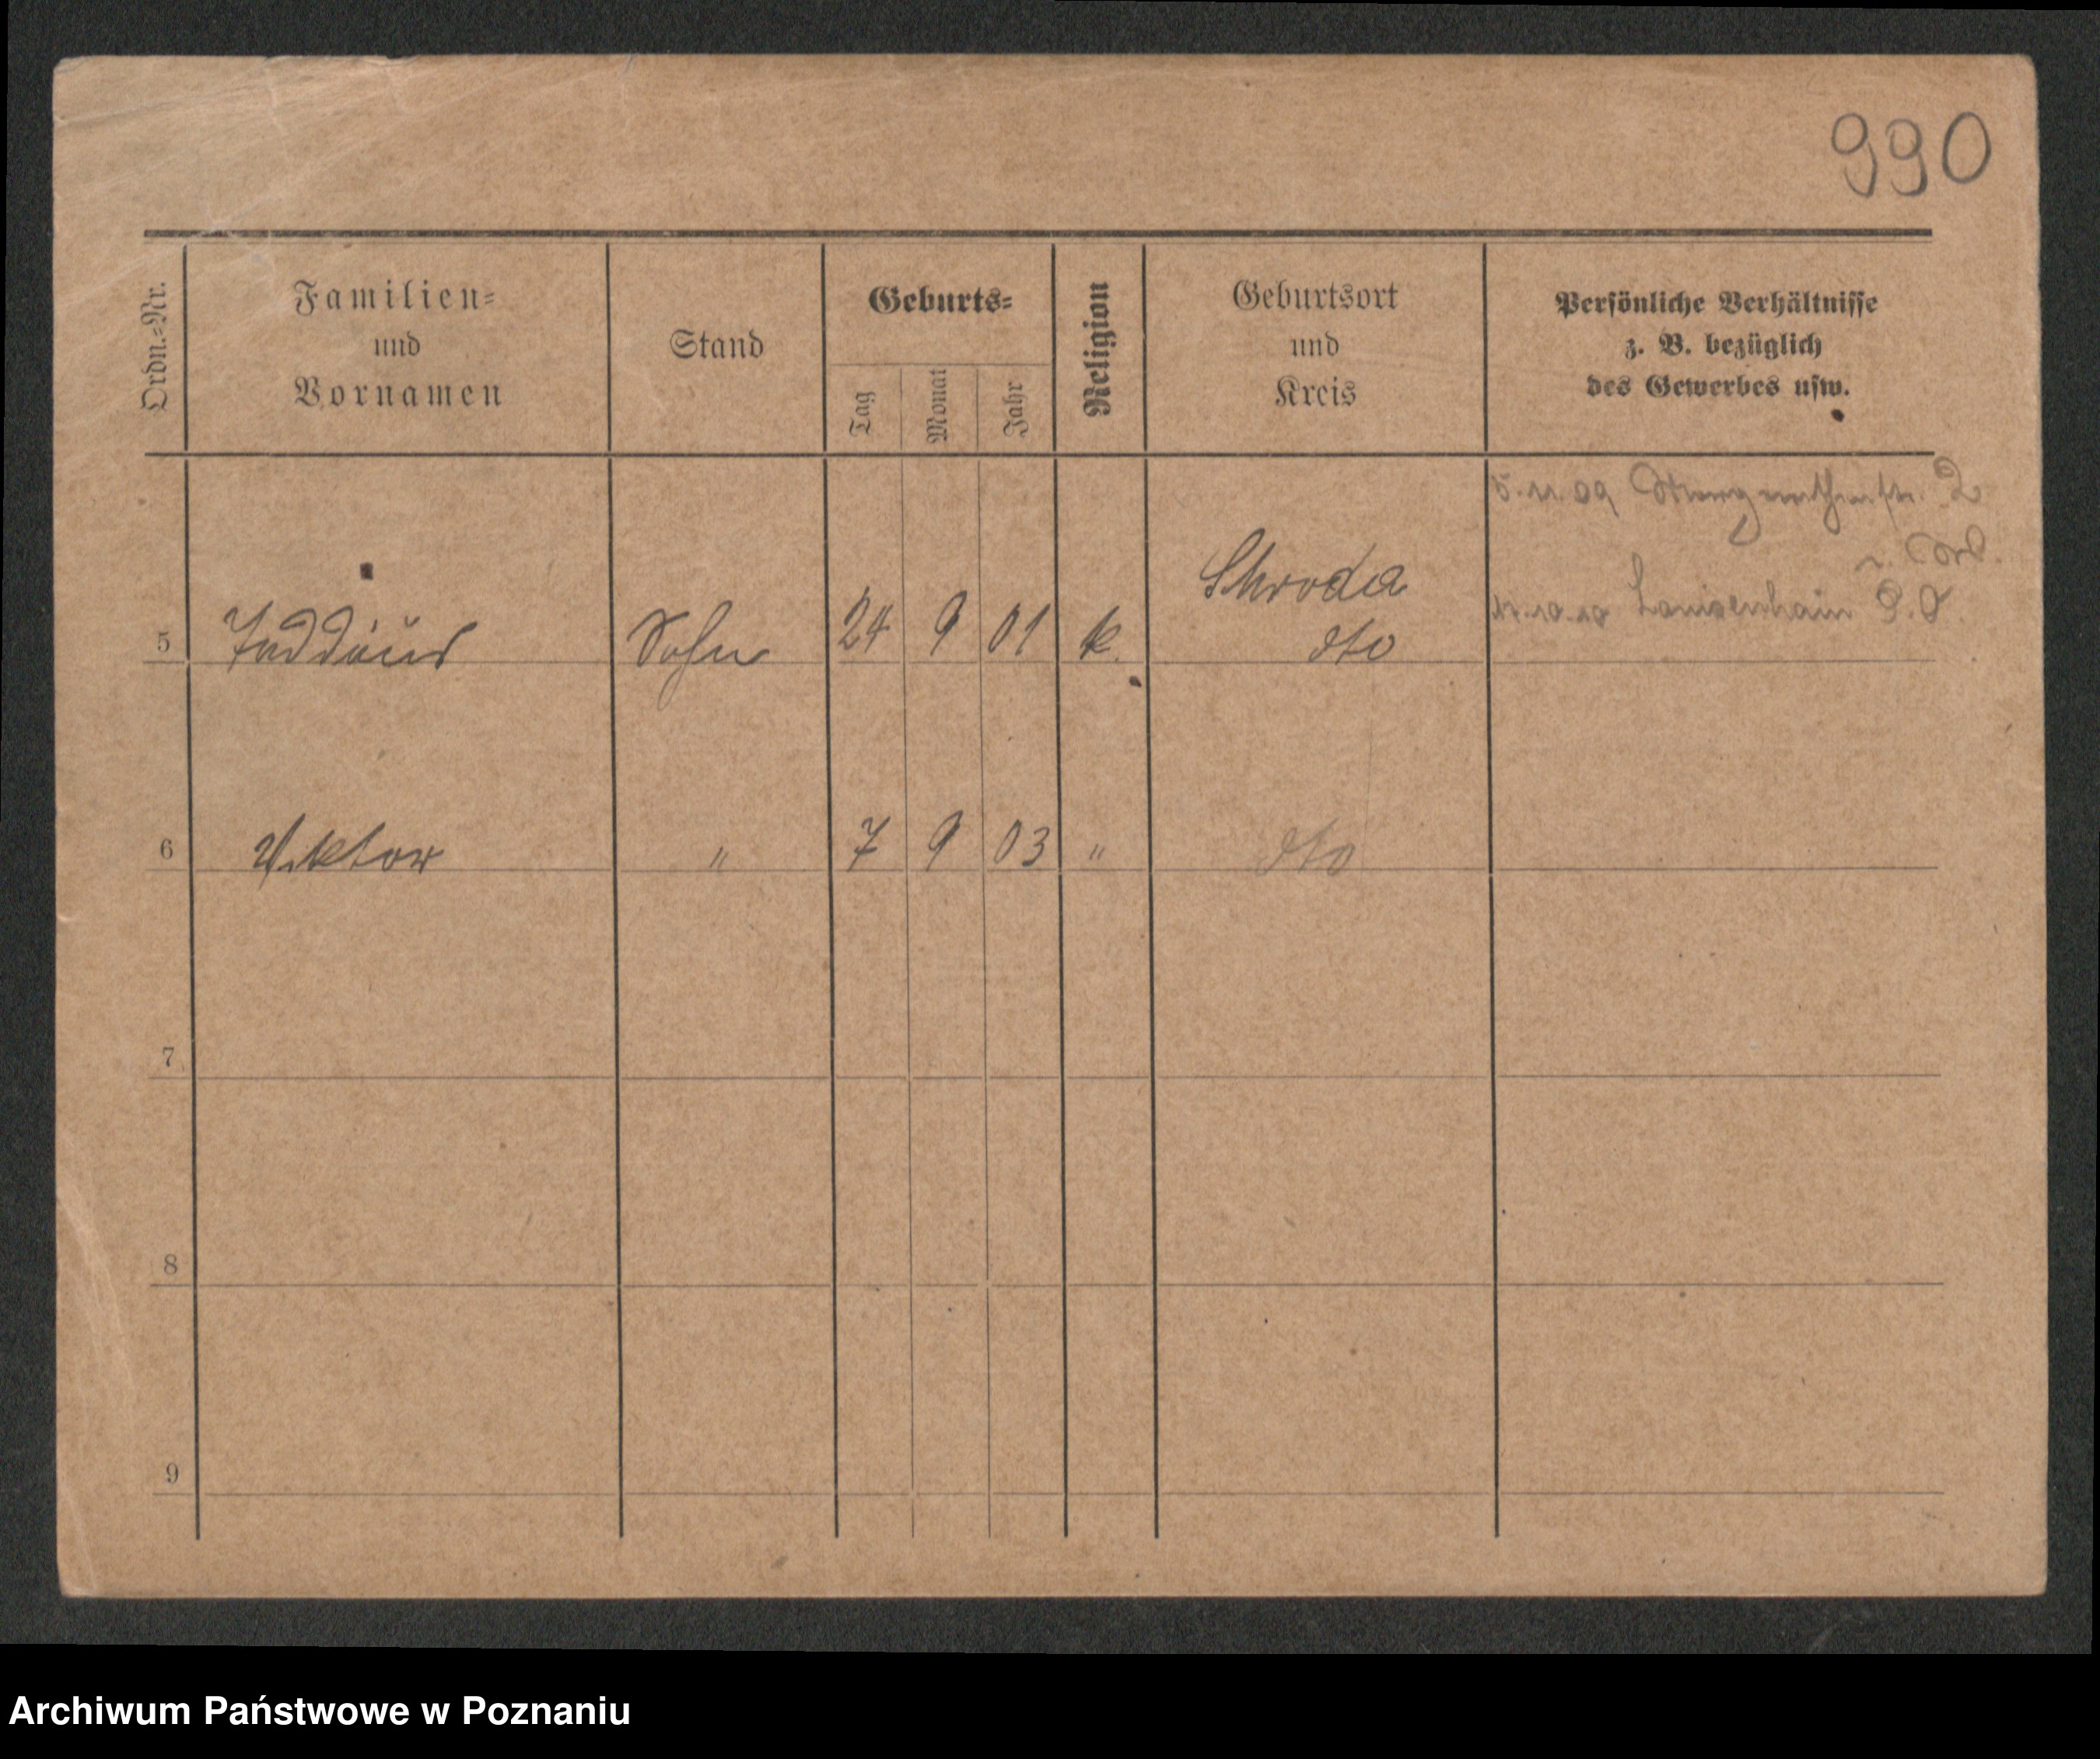 990
Ordn.-Nr.
Familien-
und
Vornamen
Stand
Geburts-
Tag
Monat
Jahr
Religion
Geburtsort
und
Kreis
Persönliche Verhältnisse
z. B. bezüglich
des Gewerbes usw.
5.11.09 2
Schroda
10.10 Louisenhain
5 Taddäus Sohn 24 9 01 k. dto
6 Viktor " 7 9 03 " dto
7
8
9
Archiwum Państwowe w Poznaniu